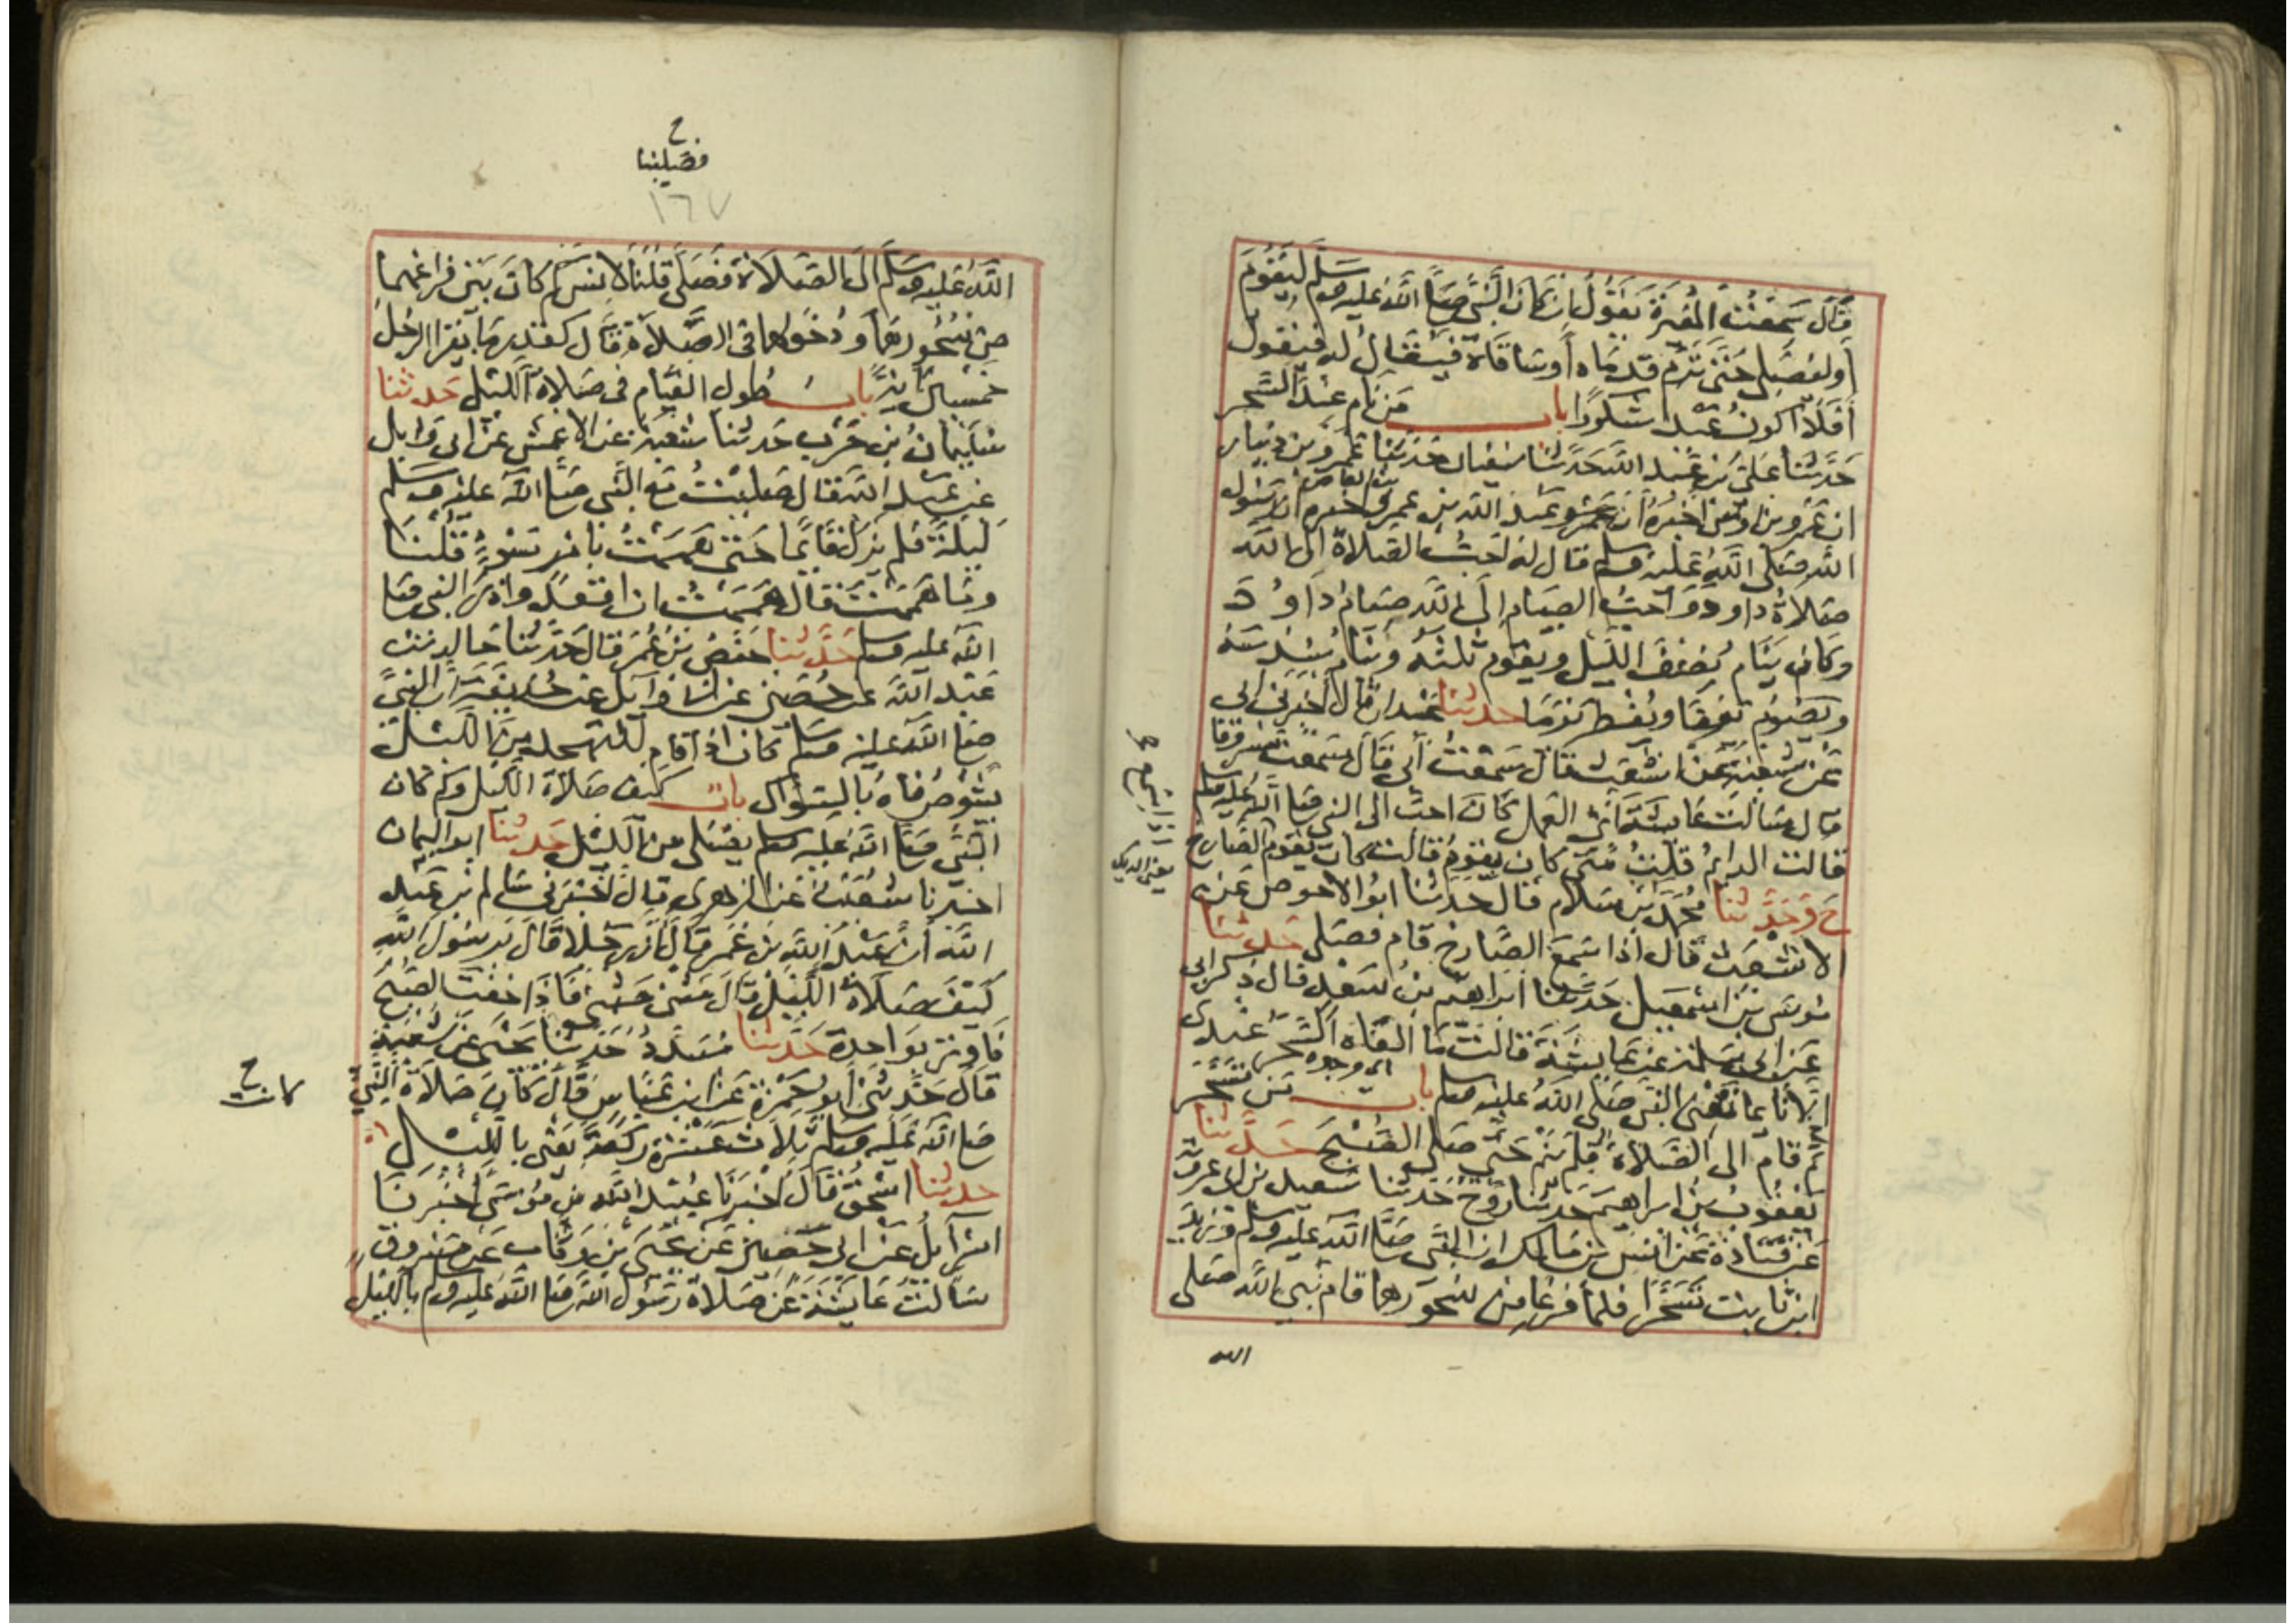 قَالَ سَمِعْتُ الْمُغِيرَةَ يَقُولُ إِنْ كَانَ النَّبِيُّ صَلَّى اللَّهُ عَلَيْهِ وَسَلَّمَ لَيَقُومُ
أَوْ لَيُصَلِّي حَتَّى تَرِمَ قَدَمَاهُ أَوْ سَاقَاهُ فَيُقَالُ لَهُ فَيَقُولُ
أَفَلَا أَكُونُ عَبْدًا شَكُورًا باب مَنْ نَامَ عِنْدَ السَّحَرِ
حَدَّثَنَا عَلِيُّ بْنُ عَبْدِ اللَّهِ حَدَّثَنَا سُفْيَانُ حَدَّثَنَا عَمْرُو بْنُ دِينَارٍ
أن عمرو بن أوس أخبره أن عبد الله بن عمرو بن العاص أخبره أن رسول
الله صلى الله عليه وسلم قال له أحب الصلاة إلى الله
صلاة داود وأحب الصيام إلى الله صيام داود
وكان ينام نصف الليل ويقوم ثلثه وينام سدسه
ويصوم يوما ويفطر يوما حدثنا عبدان قال أخبرني أبي
عن شعبة عن أشعث قال سمعت أبي قال سمعت مسروقا
قال سألت عائشة أي العمل كان أحب إلى النبي صلى الله عليه وسلم
قالت الدائم قلت متى كان يقوم قالت كان يقوم إذا سمع الصارخ
يعني الديك
ح وحدثنا محمد بن سلام قال حدثنا أبو الأحوص عن
الأشعث قال إذا سمع الصارخ قام فصلى حدثنا
موسى بن إسمعيل حدثنا إبراهيم بن سعد قال ذكر أبي
عن أبي سلمة عن عائشة قالت ما ألفاه السحر عندي
إلا نائما تعني النبي صلى الله عليه وسلم باب من تسحر
ثم قام إلى الصلاة فلم ينم حتى صلى الصبح حدثنا
يعقوب بن إبراهيم حدثنا روح حدثنا سعيد بن أبي عروبة
عن قتادة عن أنس بن مالك أن النبي صلى الله عليه وسلم وزيد
ابن ثابت تسحرا فلما فرغا من سحورهما قام نبي الله صلى
الله
ح
فصلينا
١٦٧
الله عليه وسلم إلى الصلاة فصلى قلنا لأنس كم كان بين فراغهما
من سحورهما ودخولهما في الصلاة قال كقدر ما يقرأ الرجل
خمسين آية باب طول القيام في صلاة الليل حدثنا
سليمان بن حرب حدثنا شعبة عن الأعمش عن أبي وايل
عن عبد الله قال صليت مع النبي صلى الله عليه وسلم
ليلة فلم يزل قايما حتى هممت بأمر سوء قلنا
وما هممت قال هممت أن أقعد وأذر النبي صلى
الله عليه وسلم حدثنا حفص بن عمر قال حدثنا خالد بن
عبد الله عن حصين عن أبي وايل عن حذيفة أن النبي
صلى الله عليه وسلم كان إذا قام للتهجد من الليل
يشوص فاه بالسواك باب كيف صلاة الليل وكم كان
النبي صلى الله عليه وسلم يصلي من الليل حدثنا أبو اليمان
أخبرنا شعيب عن الزهري قال أخبرني سالم بن عبد
الله أن عبد الله بن عمر قال أن رجلا قال يا رسول الله
كيف صلاة الليل قال مثنى مثنى فإذا خفت الصبح
فأوتر بواحدة حدثنا مسدد حدثنا يحيى عن شعبة
قال حدثني أبو جمرة عن ابن عباس قال كان صلاة النبي
كانت ح
صلى الله عليه وسلم ثلاث عشرة ركعة يعني بالليل
حدثنا إسحق قال أخبرنا عبيد الله بن موسى أخبرنا
إسرآيل عن أبي حصين عن يحيى بن وثاب عن مسروق
سألت عايشة عن صلاة رسول الله صلى الله عليه وسلم بالليل